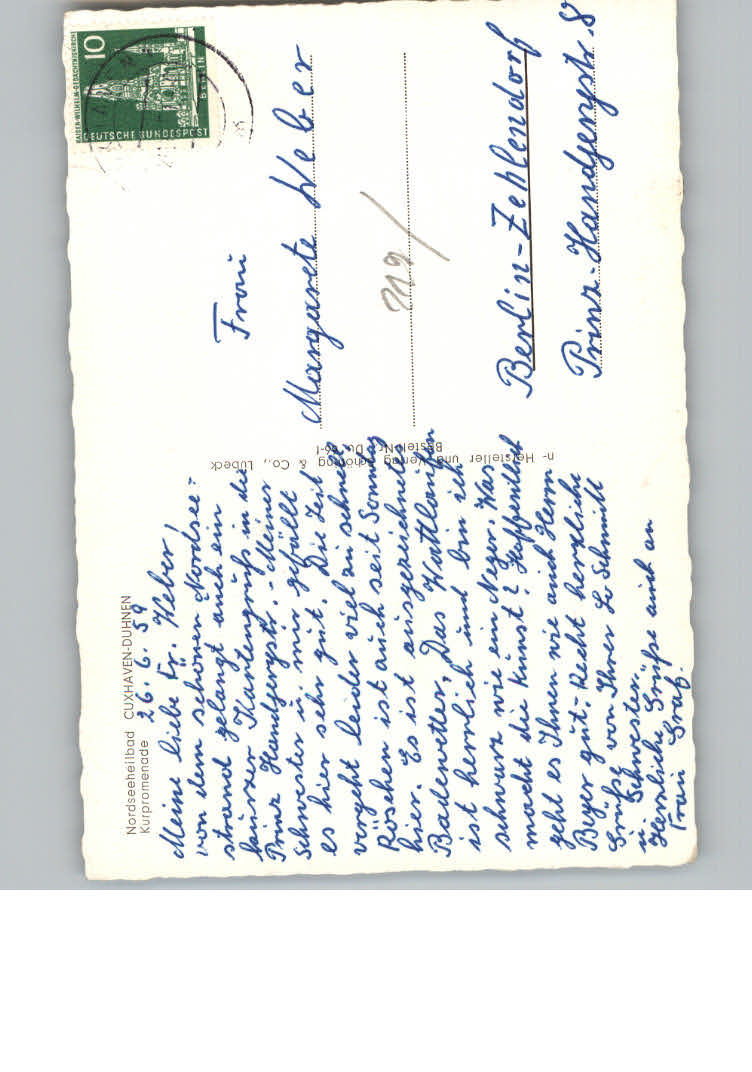 Nordseeheilbad CUXHAVEN-DUHNEN
Kurpromenade
26.6.59
Meine liebe Fr. Weber!
Von dem schönen Nordsee-
strand gelangt auch ein
kurzer Kartengruß in die
Prinz Handjerystr. - Meiner
Schwester u. mir gefällt
es hier sehr gut. Die Zeit
vergeht leider viel zu schnell.
Röschen ist auch seit Sonntag
hier. Es ist ausgezeichnetes
Badewetter, Das Wattlaufen
ist herrlich und bin ich
schwarz wie ein Neger. Was
macht die Kunst? Hoffentlich
geht es Ihnen wie auch Herrn
Beyer gut. - Recht herzliche
Grüße von Ihrer Lo Schmidt
u. Schwester.
Herzliche Grüße auch an
Frau Graf.
n- Hersteller und Verlag Schöning & Co., Lübeck
Bestell-Nr. Du
KAISER-WILHELM-GEDÄCHTNISKIRCHE
10
BERLIN
DEUTSCHE BUNDESPOST
Frau
Margarete Weber
219/
Berlin-Zehlendorf
Prinz-Handjerystr. 8